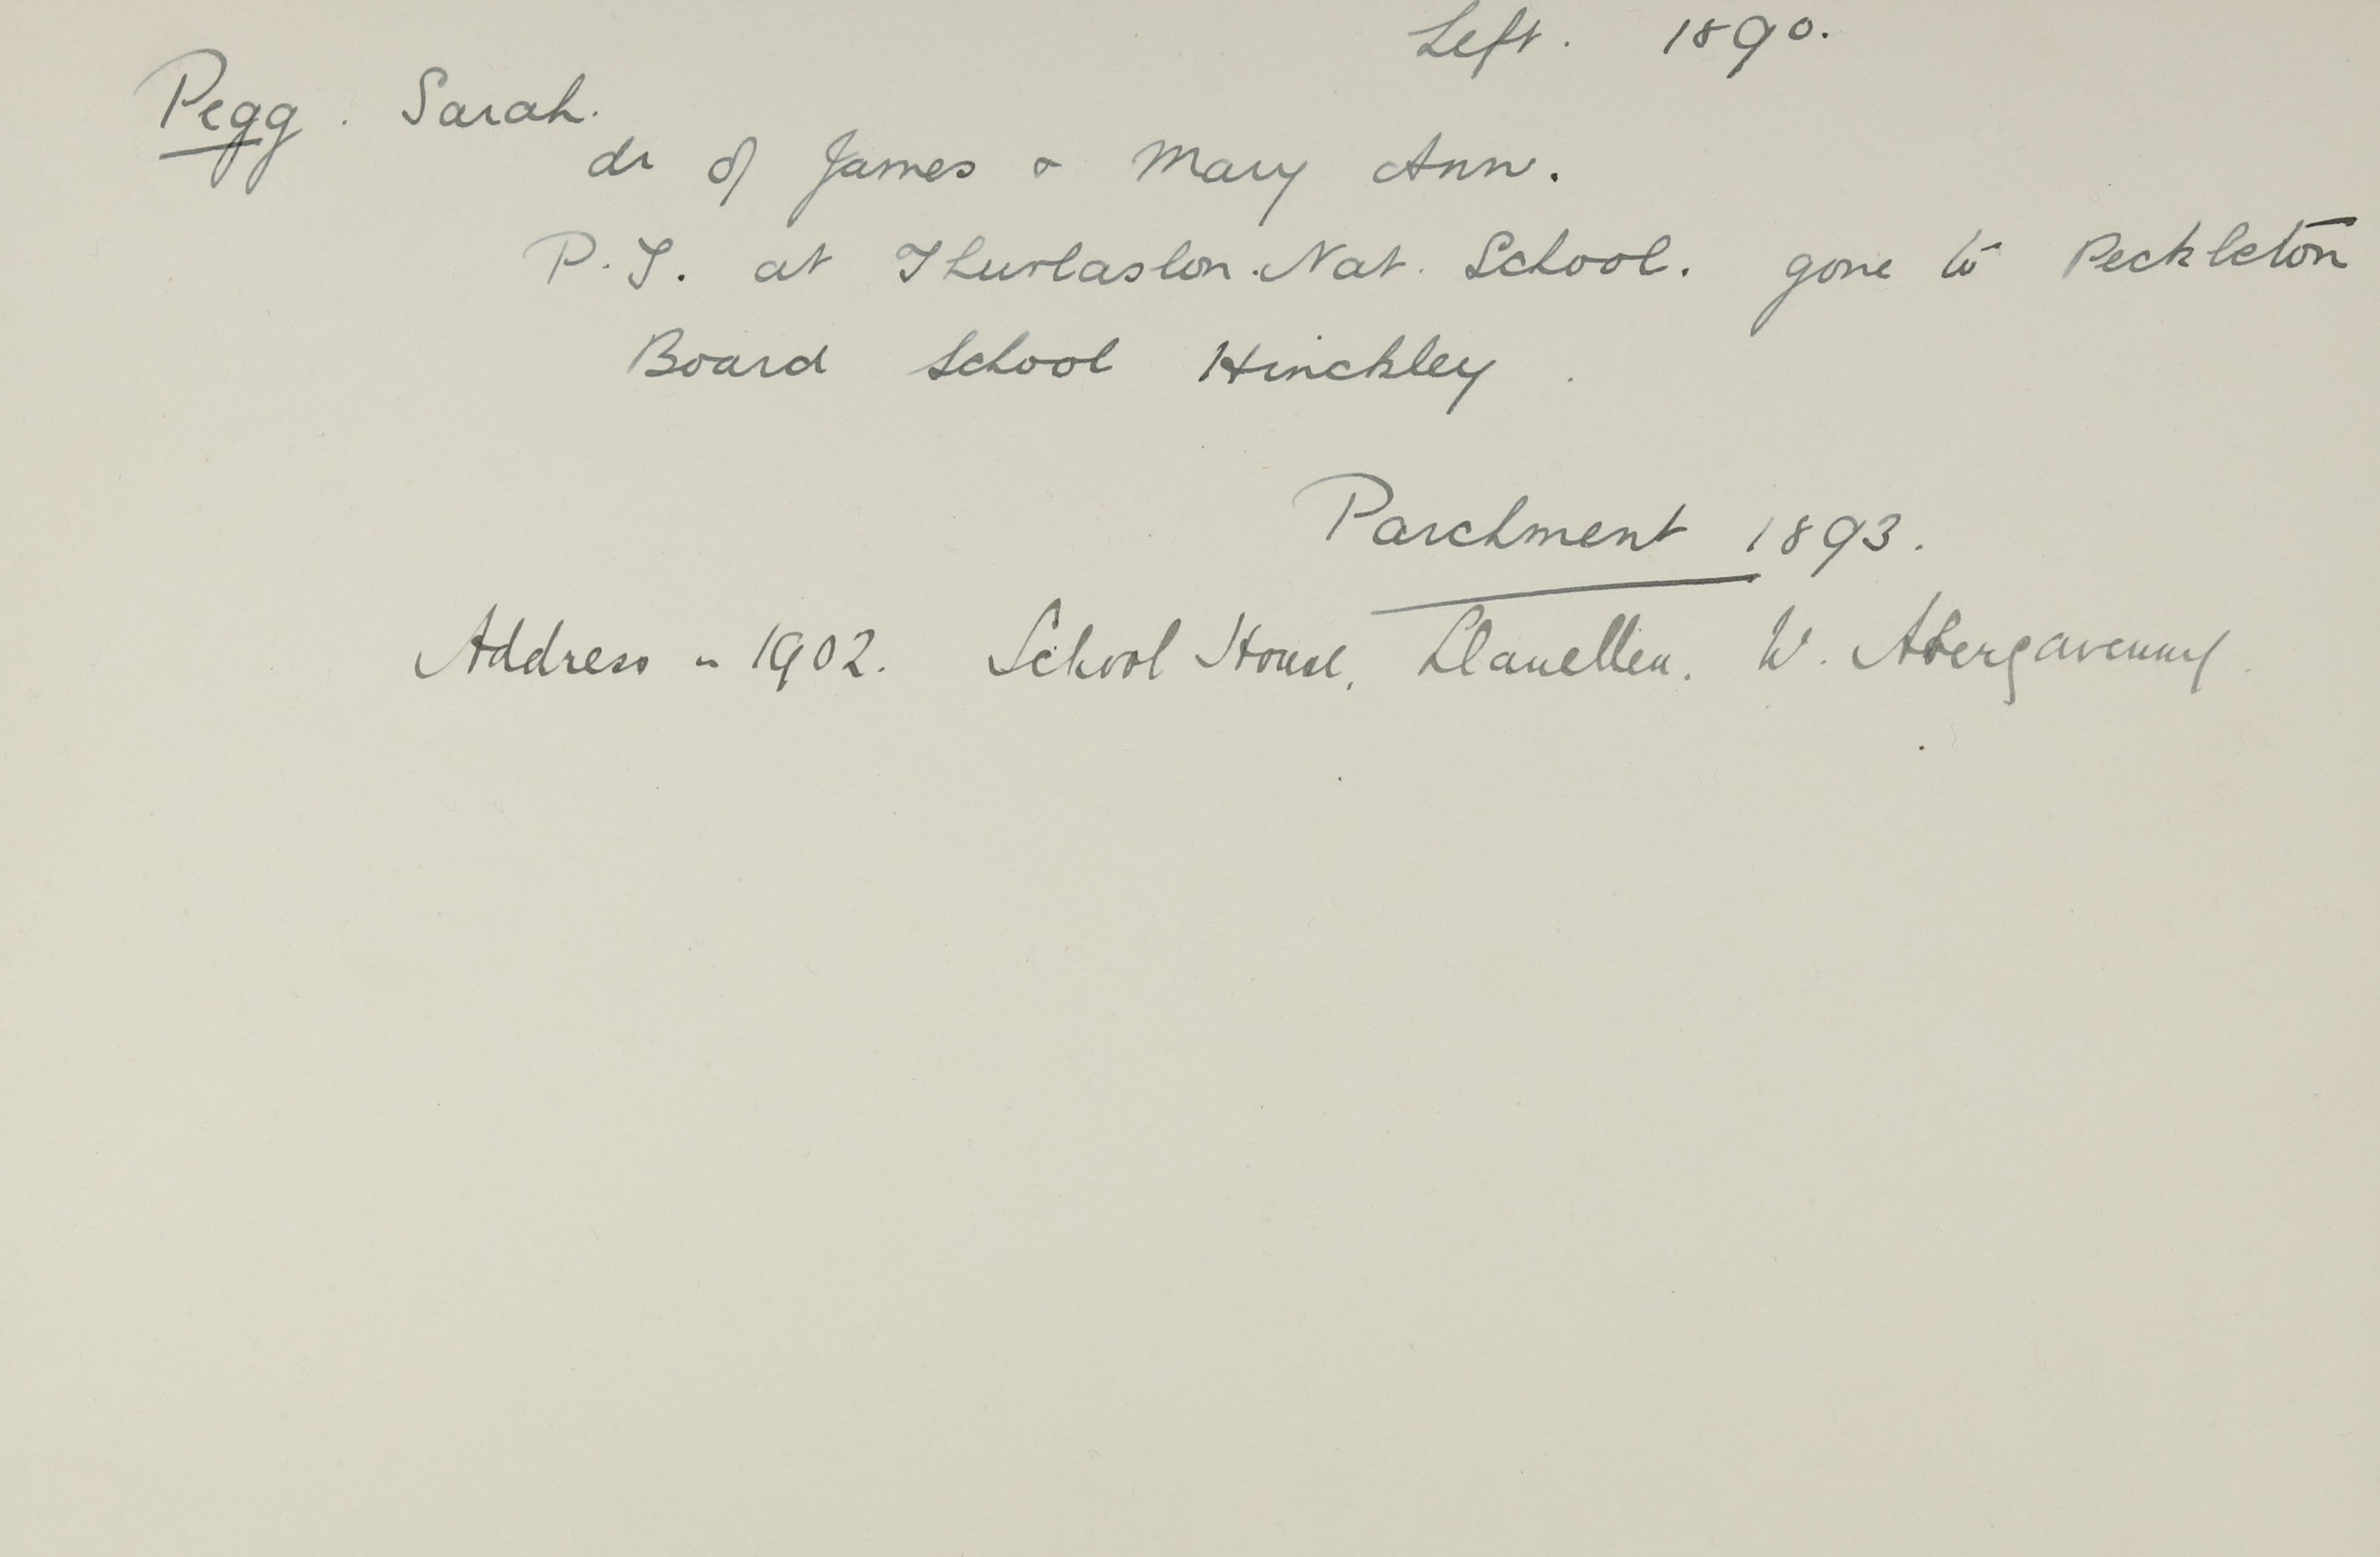 Left. 1890.
Pegg. Sarah.
dr of James & Mary Ann.
P.T. at Thurlaston. Nat. School. gone to Peckleton
Board School Hinckley.
Parchment 1893.
Address - 1902. School House, Llanellen. W. Abergavenny.